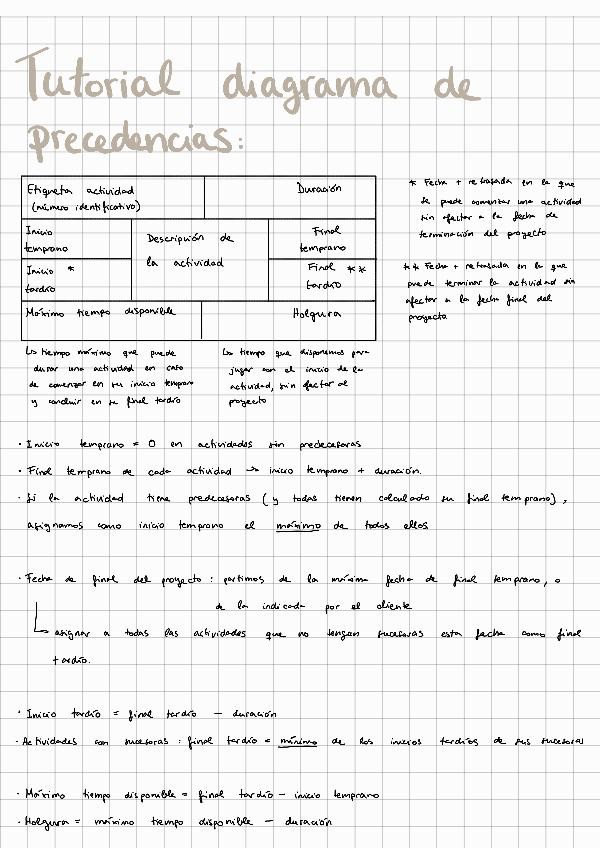 Tutorial diagrama de
precedencias:
Etiqueta actividad
(número identificativo)
Duración
Inicio
temprano
Descripción de
la actividad
Final
temprano
Inicio *
tardío
Final **
tardío
Máximo tiempo disponible
Holgura
* Fecha + retrasada en la que
se puede comenzar una actividad
sin afectar a la fecha de
terminación del proyecto
** Fecha + retrasada en la que
puede terminar la actividad sin
afectar a la fecha final del
proyecto
↳ tiempo máximo que puede
durar una actividad en caso
de comenzar en su inicio temprano
y concluir en su final tardío
↳ tiempo que disponemos para
jugar con el inicio de la
actividad, sin afectar al
proyecto
· Inicio temprano = 0 en actividades sin predecesoras
· Final temprano de cada actividad → inicio temprano + duración.
· Si la actividad tiene predecesoras (y todas tienen calculado su final temprano),
asignamos como inicio temprano el máximo de todos ellos
· Fecha de final del proyecto: partimos de la máxima fecha de final temprano, o
de la indicada por el cliente
↳ asignar a todas las actividades que no tengan sucesoras esta fecha como final
tardío.
· Inicio tardío = final tardío - duración
· Actividades con sucesoras: final tardío = mínimo de los inicios tardíos de sus sucesoras
· Máximo tiempo disponible = final tardío - inicio temprano
· Holgura = máximo tiempo disponible - duración